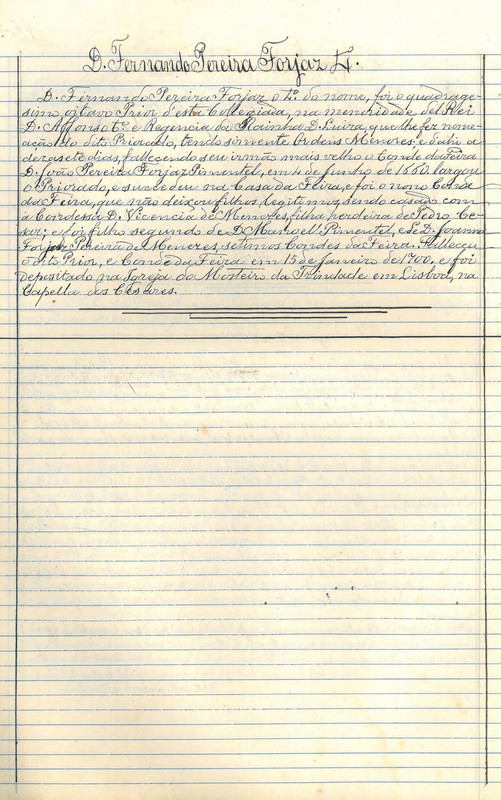 D. Fernando Pereira Forjaz
D. Fernando Pereira Forjaz o 2º do nome, foi o quadrage-
simo oitavo Prior d'esta Collegiada, na menoridade del Rei
D. Affonso 6º e Regencia da Rainha D. Luiza, que lhe fez nome-
ação do dito Priorado, tendo sómente Ordens Menores: e dahi a
dezasete dias, fallecendo seu irmão mais velho o Conde da Feira
D. João Pereira Forjaz Pimentel, em 4 de Junho de 1660, largou
o Priorado, e succedeu na Casa da Feira, e foi o nono Conde
da Feira, que não deixou filhos legitimos, sendo casado com
a Condessa D. Vicencia de Menezes, filha herdeira de Pedro Ce-
sar; e foi filho segundo de D. Manoel Pimentel, e D. Joanna
Forjaz Pereira de Menezes, setimos Condes da Feira. Falleceu
o dito Prior, e Conde da Feira em 15 de Janeiro de 1700, e foi
depositado na Igreja do Mosteiro da Trindade em Lisboa, na
Capella dos Cesares.